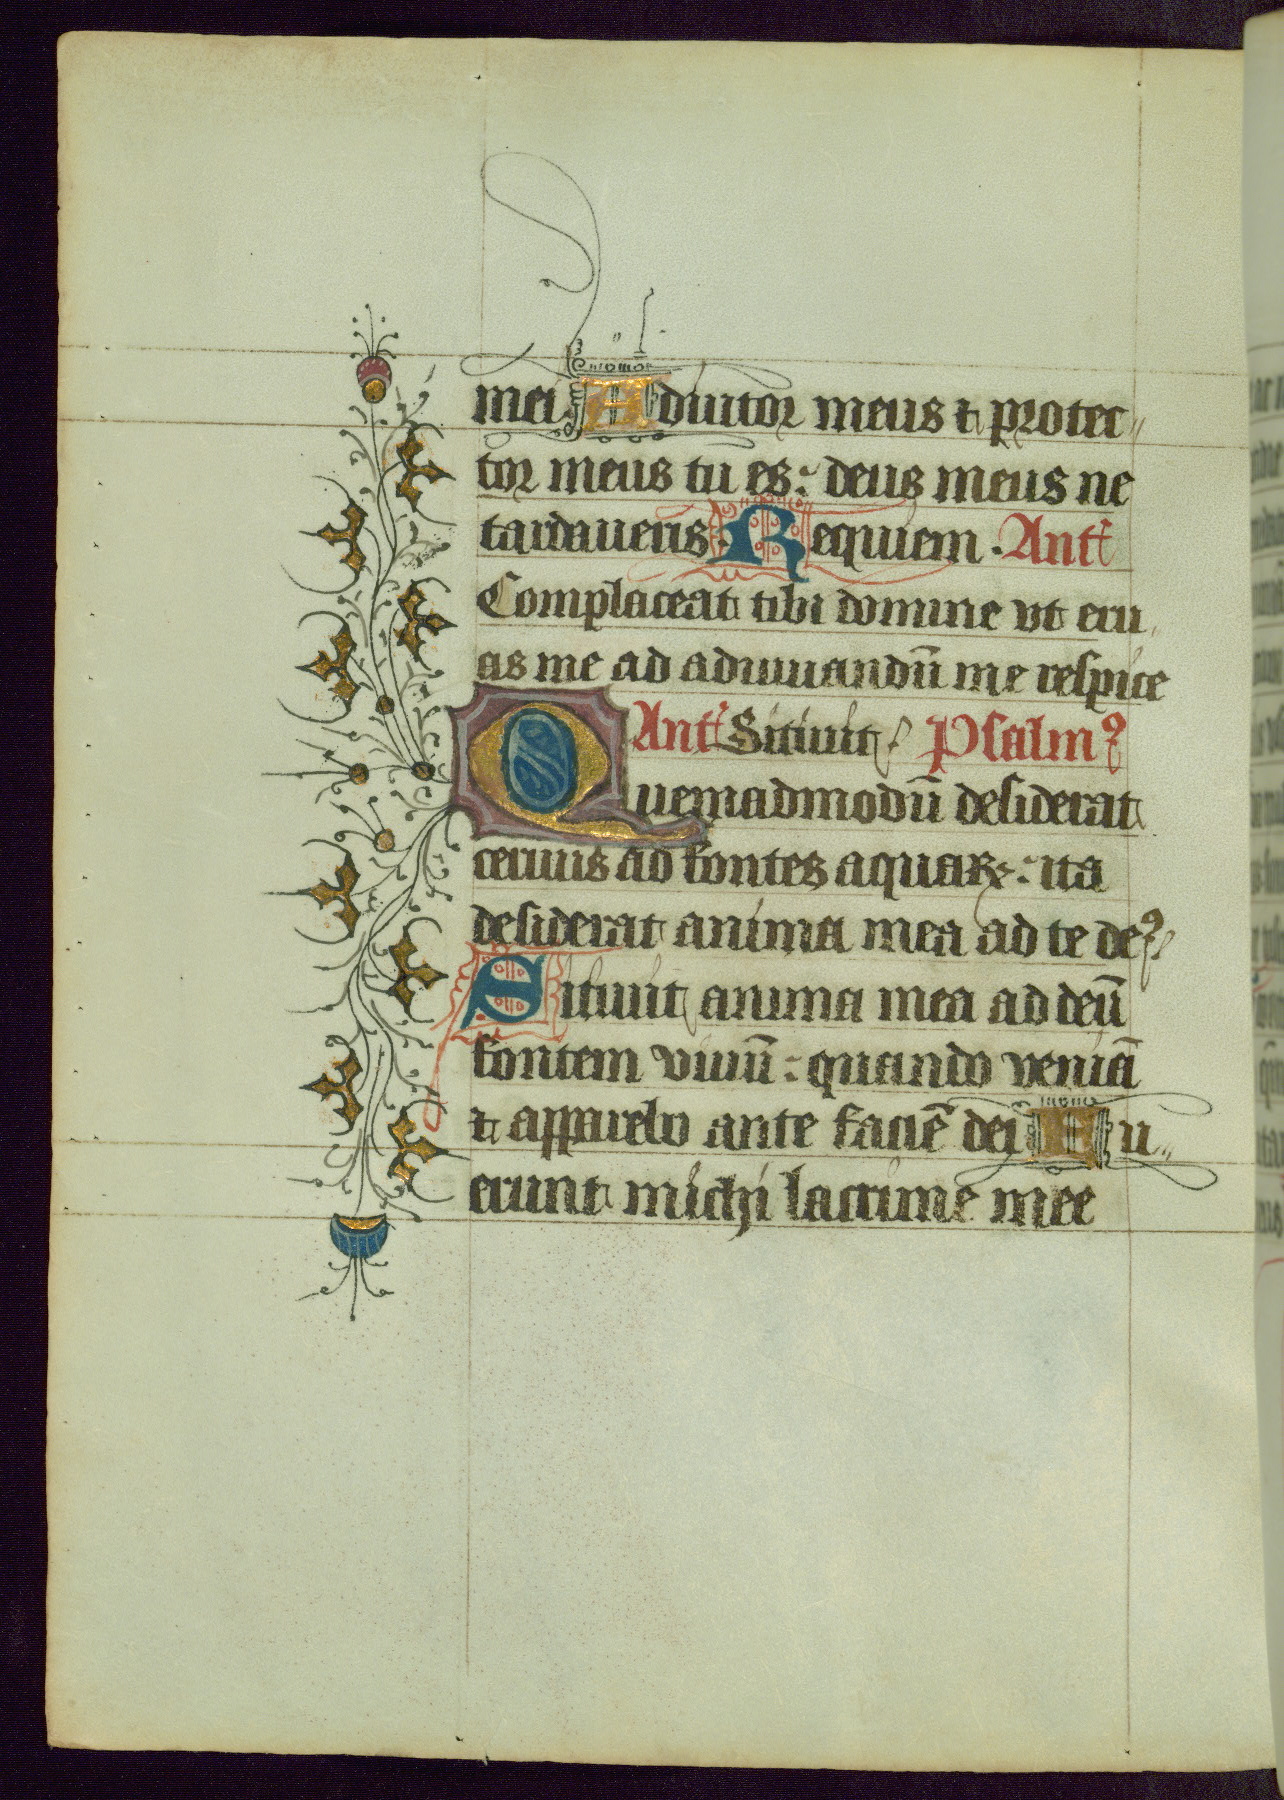 mei Adiutor meus ⁊ protec
tor meus tu es: deus meus ne
tardaueris. Requiem. Ant
Complaceat tibi domine vt eru
as me ad adiuuandū me respice
Ant Sitiuit Psalmꝰ
Quemadmodū desiderat
ceruus ad fontes aquaꝝ: ita
desiderat anima mea ad te deꝰ
Sitiuit anima mea ad deū
fontem viuū: quando veniā
⁊ apparebo ante faciē dei Fu
erunt michi lacrime mee